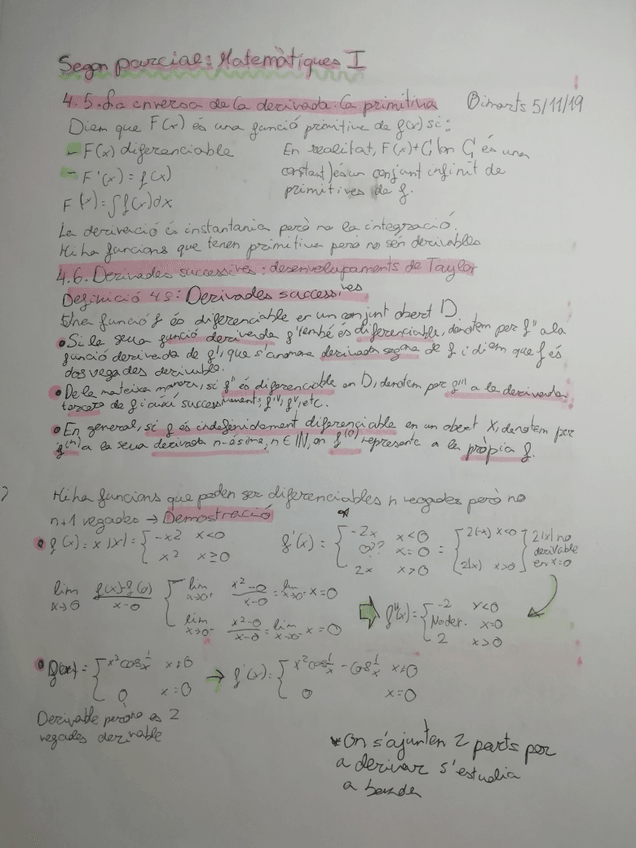 Segon parcial: Matemàtiques I
4.5. La inversa de la derivada: la primitiva Dimarts 5/11/19
Diem que F(x) és una funció primitiva de f(x) si:
- F(x) diferenciable
- F'(x) = f(x)
F(x) = ∫f(x)dx
En realitat, F(x)+C, (on C, és una
constant) és un conjunt infinit de
primitives de f.
La derivació és instantania però no la integració.
Hi ha funcions que tenen primitiva però no són derivables
4.6. Derivades successives: desenvolupaments de Taylor
Definició 48: Derivades successives
Una funció f és diferenciable en un conjunt obert D.
• Si la seua funció derivada f' també és diferenciable, denotem per f'' a la
funció derivada de f', que s'anomena derivada segona de f i diem que f és
dos vegades derivable.
• De la mateixa manera, si f'' és diferenciable en D, denotem per f''' a la derivada
tercera de f i així successivament, f^IV, f^V, etc.
• En general, si f és indefinidament diferenciable en un obert X, denotem per
f^(n) a la seua derivada n-èsima, n ∈ IN, on f^(0) representa a la pròpia f.
Hi ha funcions que poden ser diferenciables n vegades però no
n+1 vegades → Demostració
• f(x) = x|x| = { -x2 x<0
x² x≥0
f'(x) = { -2x x<0
0?? x=0
2x x>0
= { 2(-x) x<0
2(x) x>0 } 2|x| no
derivable
en x=0
lim x→0 f(x)-f(0) / x-0 { lim x→0⁺ x²-0 / x-0 = lim x→0⁺ x=0
lim x→0⁻ x²-0 / x-0 = lim x→0⁻ x=0
f''(x) = { -2 x<0
No der. x=0
2 x>0
x² cos 1/x x≠0
0 x=0
→ f'(x) = { x² cos 1/x - cos 1/x x≠0
0 x=0
Derivable però no es 2
vegades derivable
* On s'ajunten 2 parts per
a derivar s'estudia
a banda